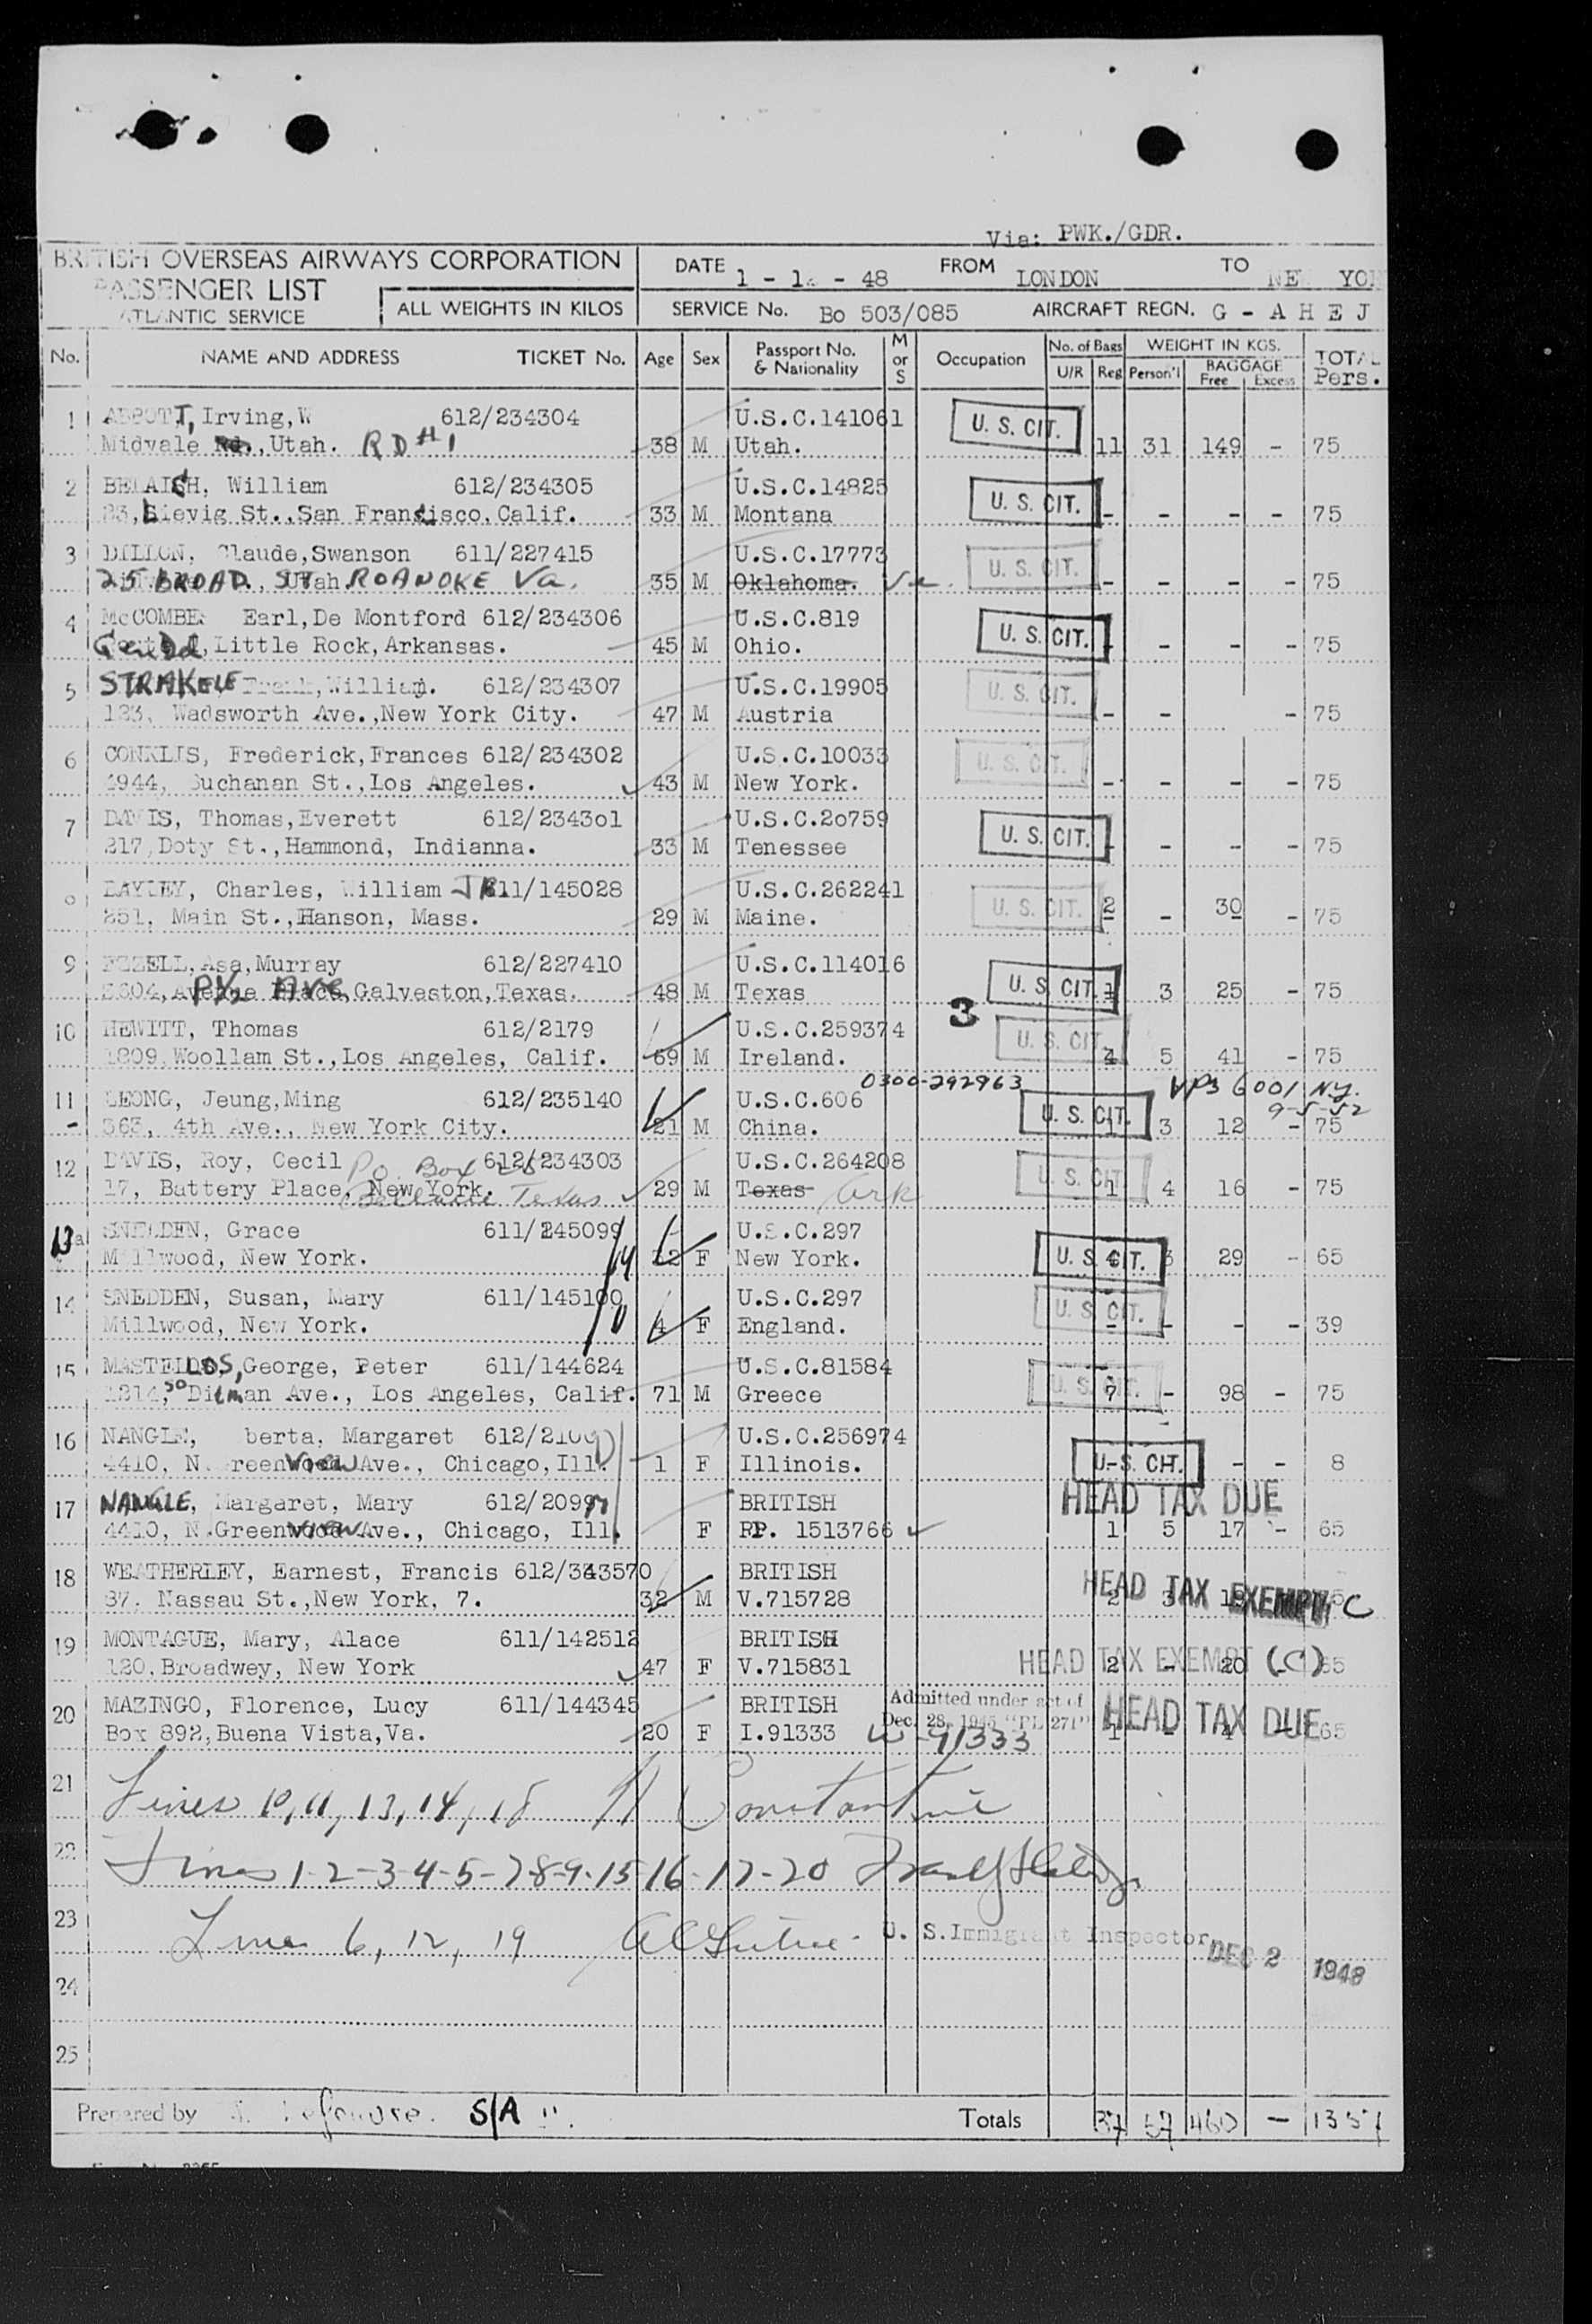 Via: PWK./GDR.
BRITISH OVERSEAS AIRWAYS CORPORATION
PASSENGER LIST
ATLANTIC SERVICE
ALL WEIGHTS IN KILOS
DATE 1 - 12 - 48 FROM LONDON TO NE YO
SERVICE No. Bo 503/085 AIRCRAFT REGN. G - A H E J
No. NAME AND ADDRESS TICKET No. Age Sex Passport No. & Nationality M or S Occupation No. of Bags U/R Reg WEIGHT IN KGS. Person'l BAGGAGE Free Excess TOTAL Pers.
1 ABBOTT, Irving, W 612/234304 U.S.C.141061 U. S. CIT.
Midvale Rd., Utah. RD #1 38 M Utah. 11 31 149 - 75
2 William 612/234305 U.S.C.14825 U. S. CIT.
St., San Francisco, Calif. 33 M Montana - - - - 75
3 DILLON, Claude, Swanson 611/227415 U.S.C.17773 U. S. CIT.
25 BROAD. ST ROANOKE Va. 35 M Oklahoma. Va. - - - - 75
4 McCOMBE Earl, De Montford 612/234306 U.S.C.819 U. S. CIT.
Little Rock, Arkansas. 45 M Ohio. - - - 75
5 STRAKELE Frank, William. 612/234307 U.S.C.19905 U. S. CIT.
123, Wadsworth Ave., New York City. 47 M Austria - - - 75
6 CONKLIS, Frederick, Frances 612/234302 U.S.C.10033 U. S. CIT.
4944, Buchanan St., Los Angeles. 43 M New York. - - - - 75
7 DAVIS, Thomas, Everett 612/2343o1 U.S.C.2o759 U. S. CIT.
217, Doty St., Hammond, Indianna. 33 M Tenessee - - - 75
8 BAYLEY, Charles, William JR. 611/145028 U.S.C.262241 U. S. CIT.
851, Main St., Hanson, Mass. 29 M Maine. 2 - 30 - 75
9 Asa, Murray 612/227410 U.S.C.114016 U. S. CIT.
3604, P1/2 AVE, Galveston, Texas. 48 M Texas 1 3 25 - 75
10 HEWITT, Thomas 612/2179 U.S.C.259374 3 U. S. CIT.
1809, Woollam St., Los Angeles, Calif. 69 M Ireland. 4 5 41 - 75
0300-292963 6001 N.Y. 9-5-52
11 LEONG, Jeung, Ming 612/235140 U.S.C.606 U. S. CIT.
363, 4th Ave., New York City. 21 M China. 3 12 - 75
12 DAVIS, Roy, Cecil Po. Box 612/234303 U.S.C.264208 U. S. CIT.
17, Battery Place, New York. Texas 29 M Texas Ark 1 4 16 - 75
13 SNEDDEN, Grace 611/245099 U.S.C.297
Millwood, New York. F New York. U. S. CIT. 29 - 65
14 SNEDDEN, Susan, Mary 611/145100 U.S.C.297 U. S. CIT.
Millwood, New York. 4 F England. - - - - 39
15 George, Peter 611/144624 U.S.C.81584 U. S. CIT.
Ave., Los Angeles, Calif. 71 M Greece 7 - 98 - 75
16 NANGLE, berta, Margaret U.S.C.256974
4410, N. Greenview Ave., Chicago, Ill. 1 F Illinois. U. S. CIT. - - 8
17 NANGLE, Margaret, Mary BRITISH HEAD TAX DUE
4410, N. Greenview Ave., Chicago, Ill. F PP. 1513766 1 5 17 - 65
18 WEATHERLEY, Earnest, Francis 612/343570 BRITISH HEAD TAX EXEMPT C
87, Nassau St., New York, 7. 32 M V.715728 2 3
19 MONTAGUE, Mary, Alace 611/142512 BRITISH
120, Broadwey, New York 47 F V.715831 HEAD TAX EXEMPT (C) 2 - 20 65
20 MAZINGO, Florence, Lucy 611/144345 BRITISH Admitted under act of HEAD TAX DUE
Box 892, Buena Vista, Va. 20 F I.91333 Dec. 28, 1945 "PL 271" W-91333 1 - 4 - 65
21 Lines 10, 11, 13, 14, 18 Constantine
22 Lines 1-2-3-4-5-7-8-9-15 16-17-20
23 Line 6, 12, 19 U. S. Immigrant Inspector DEC 2 1948
24
25
Prepared by S/A Totals 37 57 460 - 1357